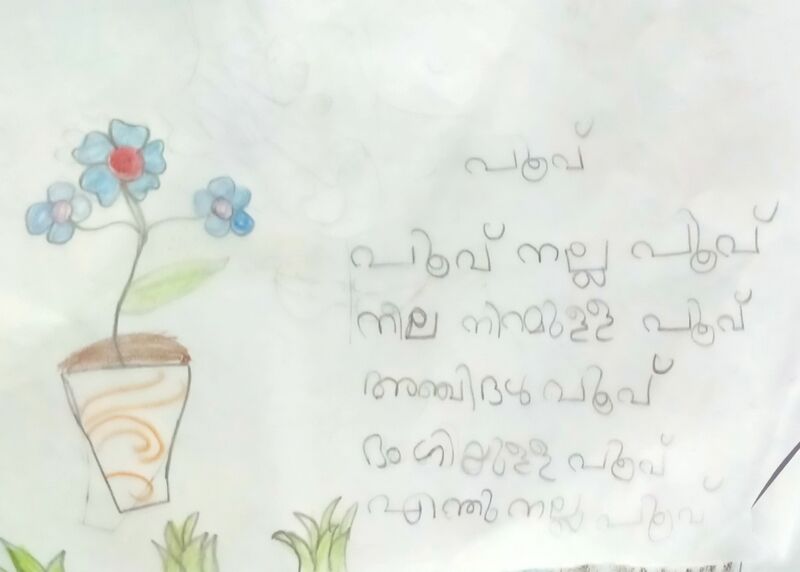 പൂവ്
പൂവ് നല്ല പൂവ്
നീല നിറമുള്ള പൂവ്
അഞ്ചിദൾ പൂവ്
ഭംഗിയുള്ള പൂവ്
എന്തു നല്ല പൂവ്